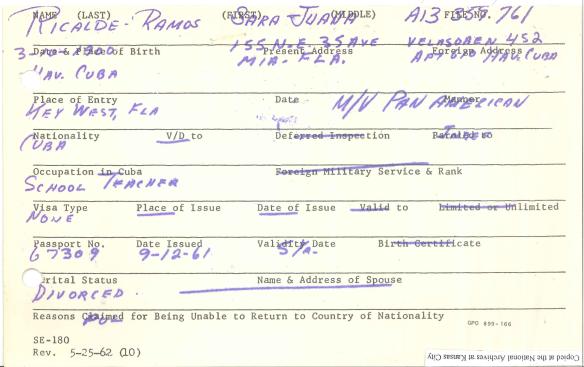 NAME (LAST) (FIRST) (MIDDLE) FILE NO.
RICALDE-RAMOS SARA JUANA A13 355 761
Date & Place of Birth Present Address Foreign Address
HAV. CUBA 155 N.E. 35 AVE 452
MIA. FLA. HAV. CUBA
Place of Entry Date Manner
KEY WEST, FLA M/V PAN AMERICAN
Nationality V/D to Deferred Inspection Paroled to
CUBA
Occupation in Cuba Foreign Military Service & Rank
SCHOOL TEACHER
Visa Type Place of Issue Date of Issue Valid to Limited or Unlimited
NONE
Passport No. Date Issued Validity Date Birth Certificate
67309 9-12-61
Marital Status Name & Address of Spouse
DIVORCED
Reasons Claimed for Being Unable to Return to Country of Nationality
POL
GPO 899-166
SE-180
Rev. 5-25-62 (10)
Copied at the National Archives at Kansas City